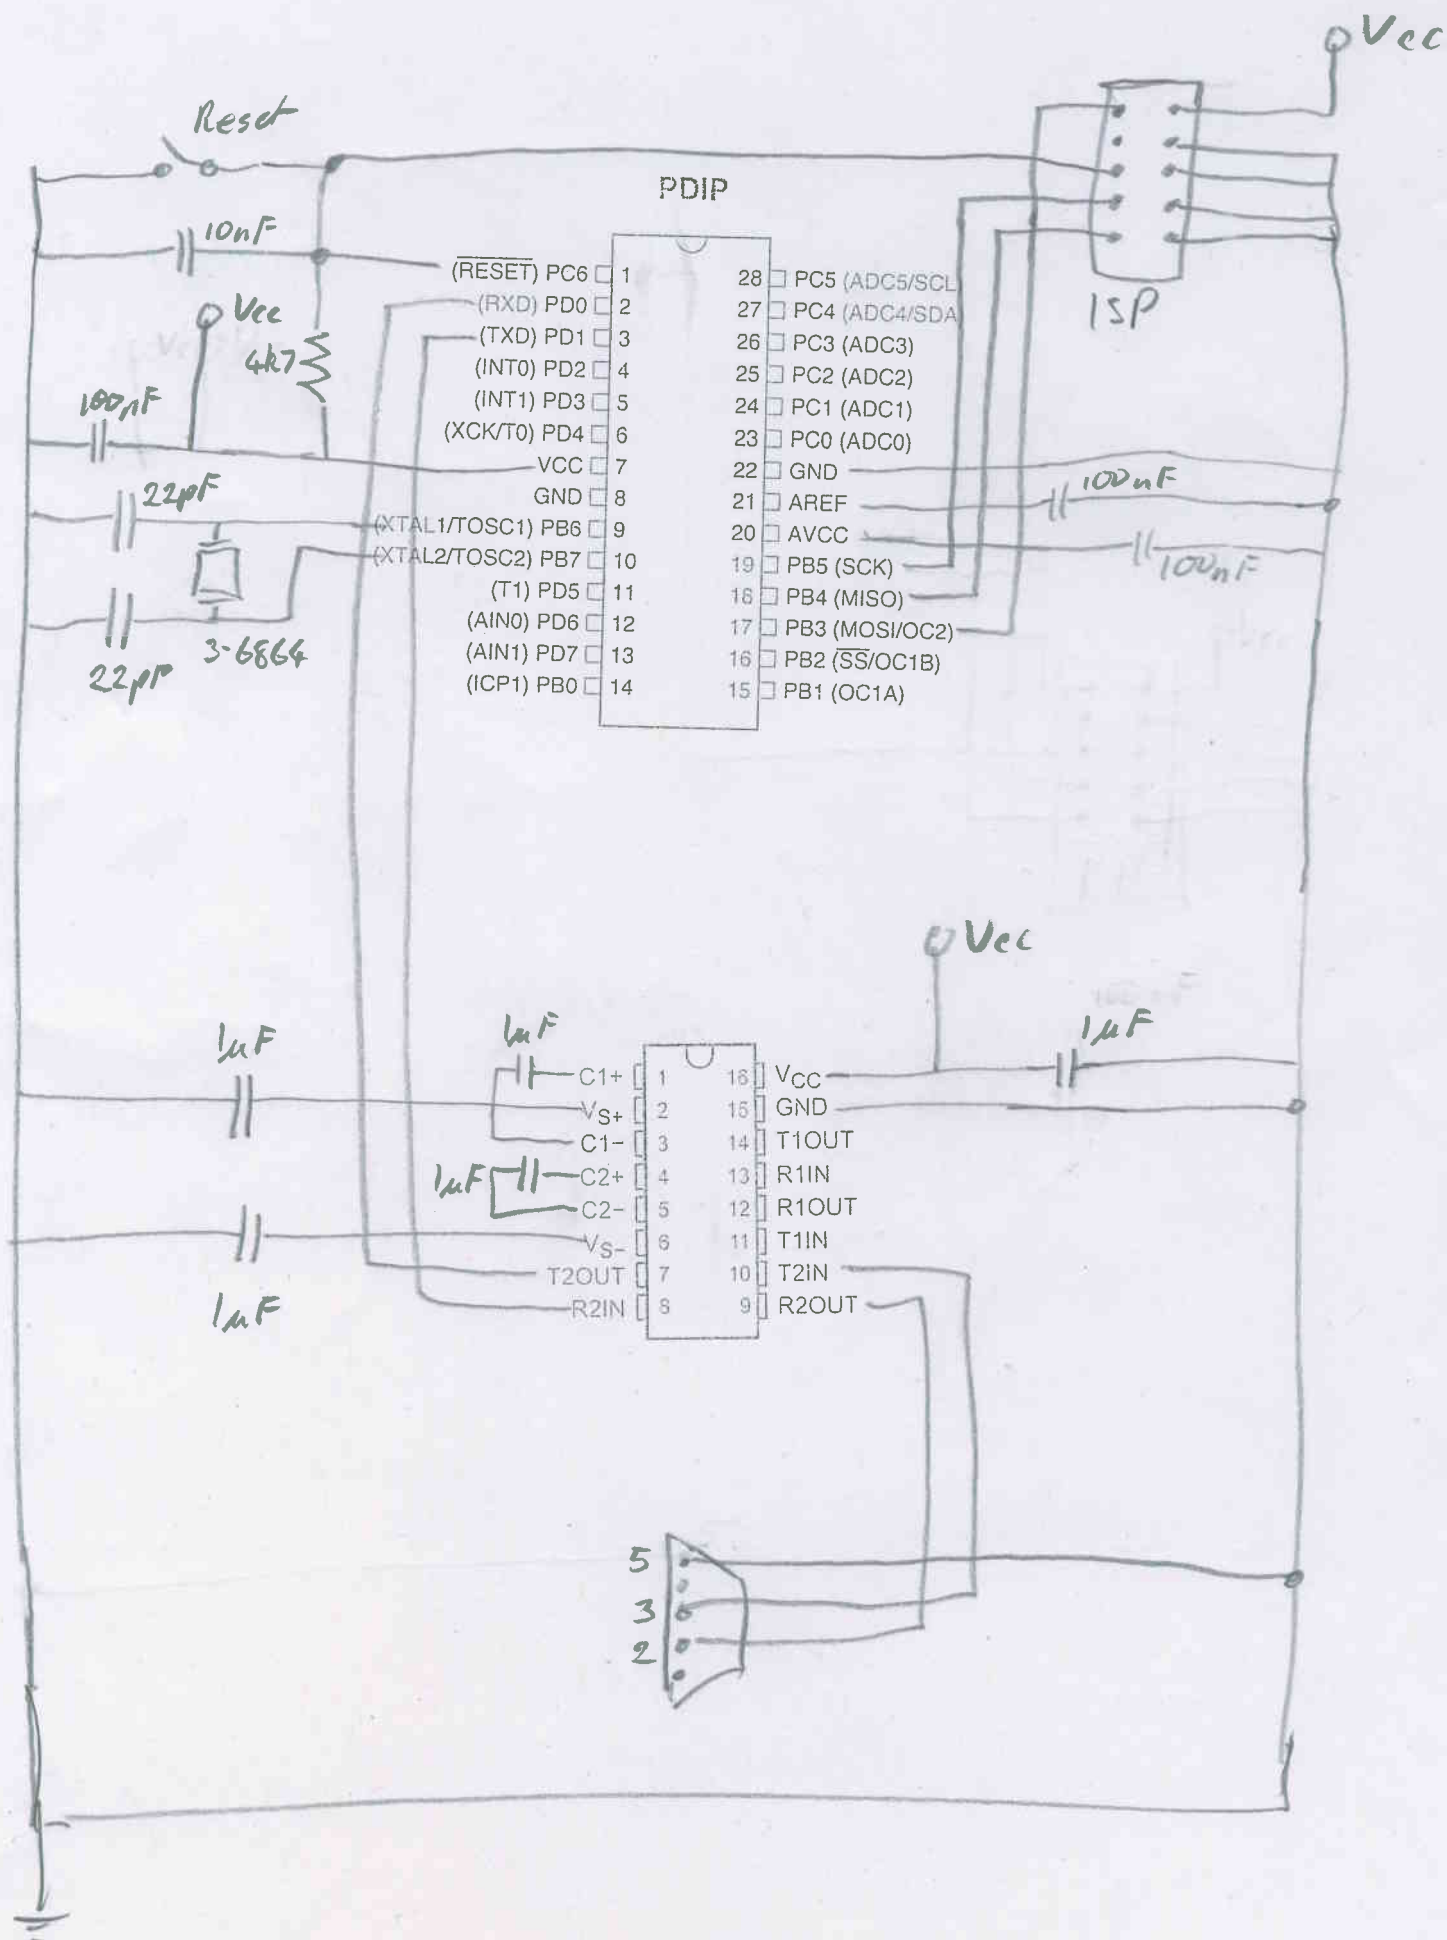 Vcc
Reset
PDIP
10nF
ISP
(RESET) PC6 1
(RXD) PD0 2
(TXD) PD1 3
(INT0) PD2 4
(INT1) PD3 5
(XCK/T0) PD4 6
VCC 7
GND 8
(XTAL1/TOSC1) PB6 9
(XTAL2/TOSC2) PB7 10
(T1) PD5 11
(AIN0) PD6 12
(AIN1) PD7 13
(ICP1) PB0 14
28 PC5 (ADC5/SCL
27 PC4 (ADC4/SDA
26 PC3 (ADC3)
25 PC2 (ADC2)
24 PC1 (ADC1)
23 PC0 (ADC0)
22 GND
21 AREF
20 AVCC
19 PB5 (SCK)
18 PB4 (MISO)
17 PB3 (MOSI/OC2)
16 PB2 (SS/OC1B)
15 PB1 (OC1A)
Vcc
4k7
100nF
22pF
3-6864
22pF
100nF
100nF
Vcc
1µF
1µF
1µF
C1+ 1
VS+ 2
C1− 3
1µF C2+ 4
C2− 5
VS− 6
T2OUT 7
R2IN 8
16 VCC
15 GND
14 T1OUT
13 R1IN
12 R1OUT
11 T1IN
10 T2IN
9 R2OUT
1µF
5
3
2